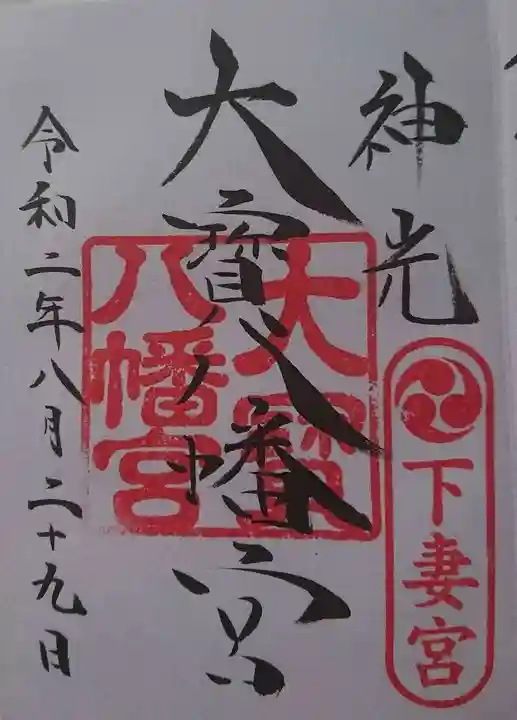 神光
下妻宮
大寳八幡宮
大寳
八幡宮
令和二年八月二十九日